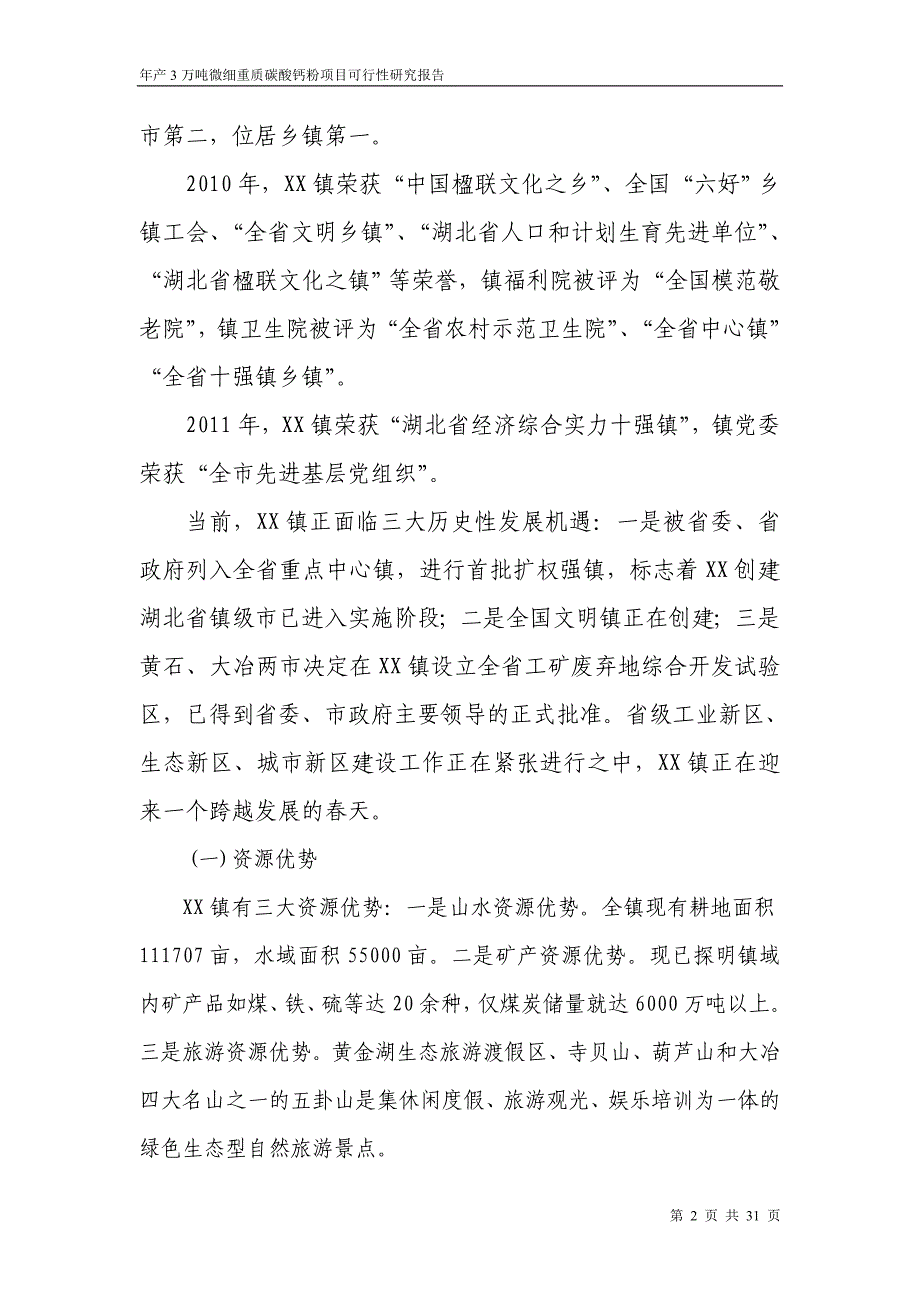 年产 3 万吨微细重质碳酸钙粉项目可行性研究报告
市第二，位居乡镇第一。
2010 年，XX 镇荣获“中国楹联文化之乡”、全国“六好”乡
镇工会、“全省文明乡镇”、“湖北省人口和计划生育先进单位”、
“湖北省楹联文化之镇”等荣誉，镇福利院被评为“全国模范敬
老院”，镇卫生院被评为“全省农村示范卫生院”、“全省中心镇”
“全省十强镇乡镇”。
2011 年，XX 镇荣获“湖北省经济综合实力十强镇”，镇党委
荣获“全市先进基层党组织”。
当前，XX 镇正面临三大历史性发展机遇：一是被省委、省
政府列入全省重点中心镇，进行首批扩权强镇，标志着 XX 创建
湖北省镇级市已进入实施阶段；二是全国文明镇正在创建；三是
黄石、大冶两市决定在 XX 镇设立全省工矿废弃地综合开发试验
区，已得到省委、市政府主要领导的正式批准。省级工业新区、
生态新区、城市新区建设工作正在紧张进行之中，XX 镇正在迎
来一个跨越发展的春天。
(一)资源优势
XX 镇有三大资源优势：一是山水资源优势。全镇现有耕地面积
111707 亩，水域面积 55000 亩。二是矿产资源优势。现已探明镇域
内矿产品如煤、铁、硫等达 20 余种，仅煤炭储量就达 6000 万吨以上。
三是旅游资源优势。黄金湖生态旅游渡假区、寺贝山、葫芦山和大冶
四大名山之一的五卦山是集休闲度假、旅游观光、娱乐培训为一体的
绿色生态型自然旅游景点。
第 2 页 共 31 页